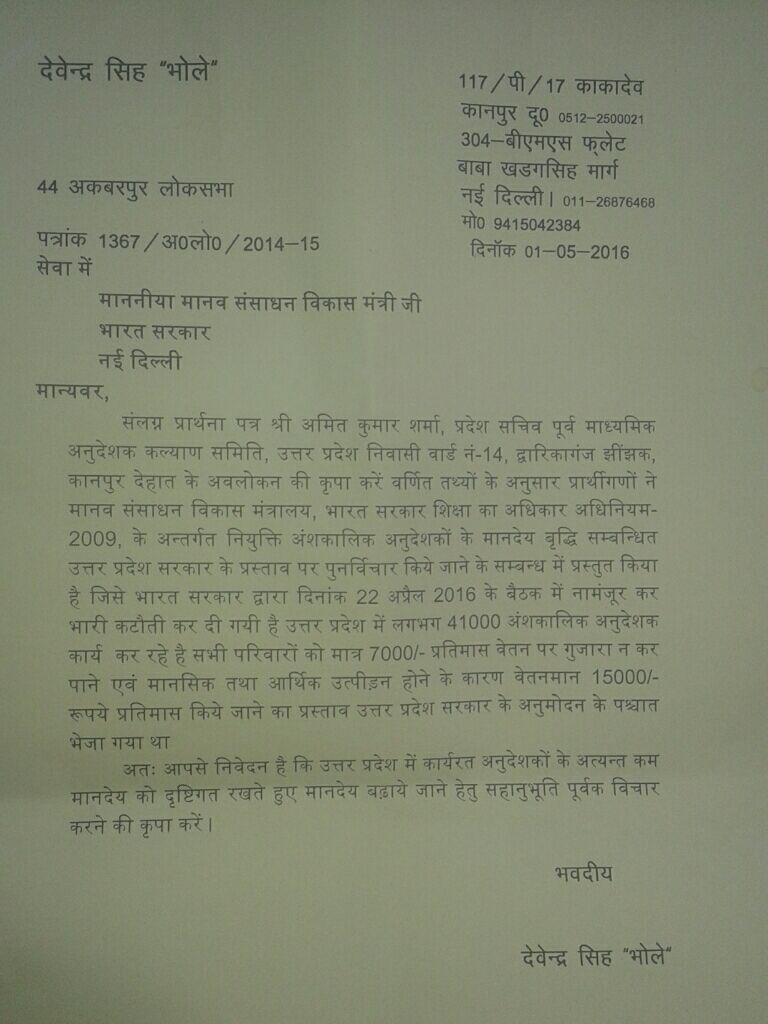 देवेन्द्र सिंह "भोले"
117/पी/17 काकादेव
कानपुर दू0 0512-2500021
304-बीएमएस फ्लेट
बाबा खडगसिह मार्ग
नई दिल्ली। 011-26876468
मो0 9415042384
दिनॉक 01-05-2016
44 अकबरपुर लोकसभा
पत्रांक 1367/अ0लो0/2014-15
सेवा में
माननीया मानव संसाधन विकास मंत्री जी
भारत सरकार
नई दिल्ली
मान्यवर,
संलग्न प्रार्थना पत्र श्री अमित कुमार शर्मा, प्रदेश सचिव पूर्व माध्यमिक
अनुदेशक कल्याण समिति, उत्तर प्रदेश निवासी वार्ड नं-14, द्वारिकागंज झींझक,
कानपुर देहात के अवलोकन की कृपा करें वर्णित तथ्यों के अनुसार प्रार्थीगणों ने
मानव संसाधन विकास मंत्रालय, भारत सरकार शिक्षा का अधिकार अधिनियम-
2009, के अन्तर्गत नियुक्ति अंशकालिक अनुदेशकों के मानदेय बृद्धि सम्बन्धित
उत्तर प्रदेश सरकार के प्रस्ताव पर पुनर्विचार किये जाने के सम्बन्ध में प्रस्तुत किया
है जिसे भारत सरकार द्वारा दिनांक 22 अप्रैल 2016 के बैठक में नामंजूर कर
भारी कटौती कर दी गयी है उत्तर प्रदेश में लगभग 41000 अंशकालिक अनुदेशक
कार्य कर रहे है सभी परिवारों को मात्र 7000/- प्रतिमास वेतन पर गुजारा न कर
पाने एवं मानसिक तथा आर्थिक उत्पीड़न होने के कारण वेतनमान 15000/-
रूपये प्रतिमास किये जाने का प्रस्ताव उत्तर प्रदेश सरकार के अनुमोदन के पश्चात
भेजा गया था
अतः आपसे निवेदन है कि उत्तर प्रदेश में कार्यरत अनुदेशकों के अत्यन्त कम
मानदेय को दृष्टिगत रखते हुए मानदेय बढ़ाये जाने हेतु सहानुभूति पूर्वक विचार
करने की कृपा करें।
भवदीय
देवेन्द्र सिंह "भोले"